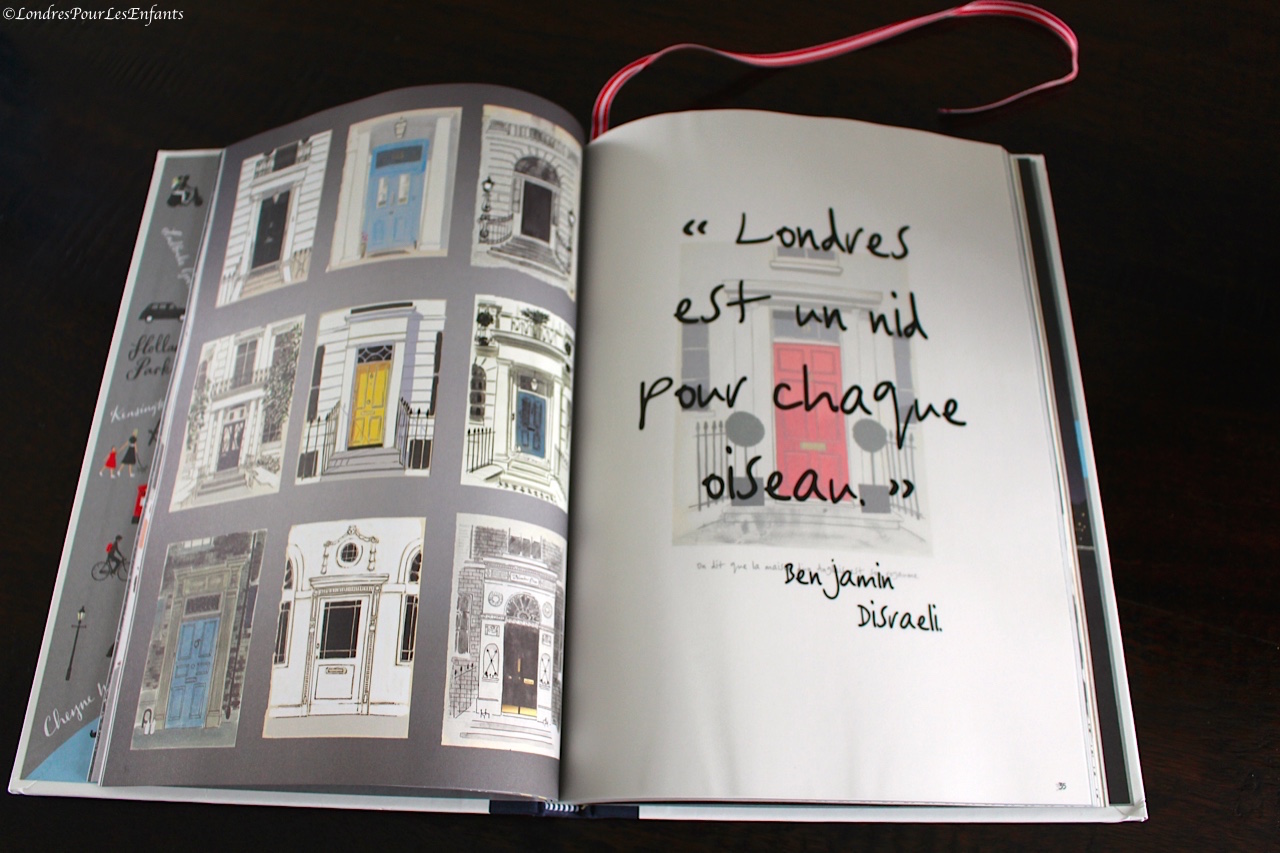 ©LondresPourLesEnfants
Holla
Park
Kensingt
Cheyne W
« Londres
est un nid
pour chaque
oiseau. »
On dit que la
Benjamin
Disraeli.
35